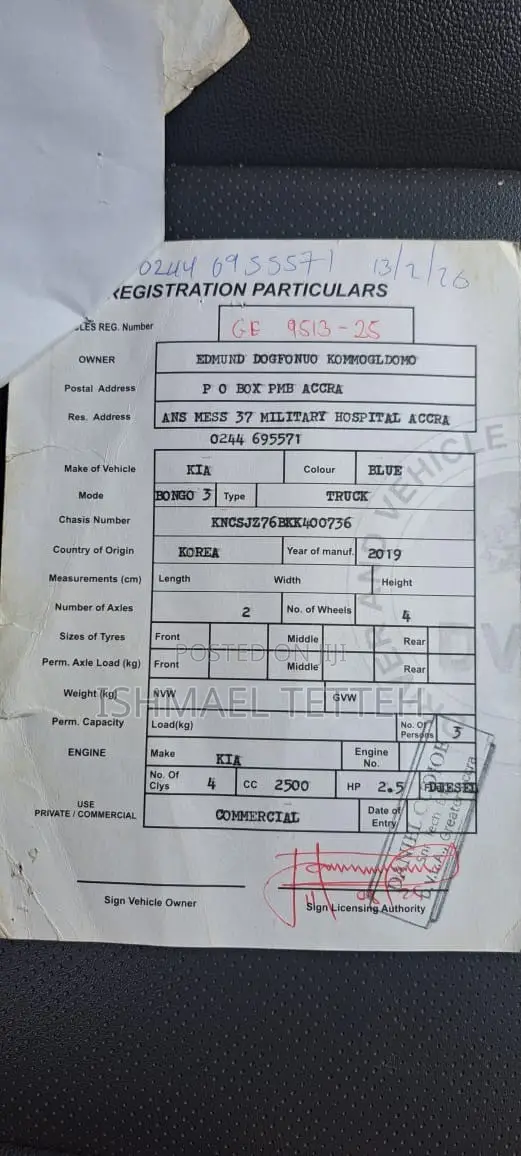 0244 6955571 13/2/26
REGISTRATION PARTICULARS
LES REG. Number GE 9513-25
OWNER EDMUND DOGFONUO KOMMOGLDOMO
Postal Address P O BOX PMB ACCRA
Res. Address ANS MESS 37 MILITARY HOSPITAL ACCRA
0244 695571
Make of Vehicle KIA Colour BLUE
Mode BONGO 3 Type TRUCK
Chasis Number KNCSJZ76BKK400736
Country of Origin KOREA Year of manuf. 2019
Measurements (cm) Length Width Height
Number of Axles 2 No. of Wheels 4
Sizes of Tyres Front Middle Rear
POSTED ON JIJI
Perm. Axle Load (kg) Front Middle Rear
Weight (kg) NVW GVW
ISHMAEL TETTEH
Perm. Capacity Load(kg) No. Of Persons 3
ENGINE Make KIA Engine No.
No. Of Clys 4 CC 2500 HP 2.5 DIESEL
USE
PRIVATE / COMMERCIAL COMMERCIAL Date of Entry
Sign Vehicle Owner Sign Licensing Authority
DANIEL
D.V.L.A., Greater Accra